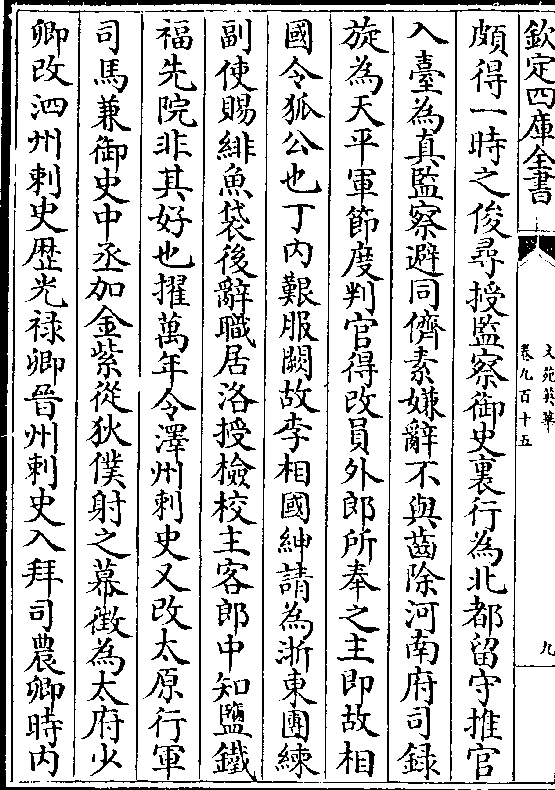 欽定四庫全書
文苑英華
卷九百十五
九
頗得一時之俊尋授監察御史裏行為北都留守推官
入臺為真監察避同儕素嫌辭不與齒除河南府司録
旋為天平軍節度判官得改員外郎所奉之主即故相
國令狐公也丁内艱服闋故李相國紳請為浙東團練
副使賜緋魚袋後辭職居洛授檢校主客郎中知鹽鐵
福先院非其好也擢萬年令澤州刺史又改太原行軍
司馬兼御史中丞加金紫從狄僕射之幕徴為太府少
卿改泗州刺史歴光禄卿晉州刺史入拜司農卿時内